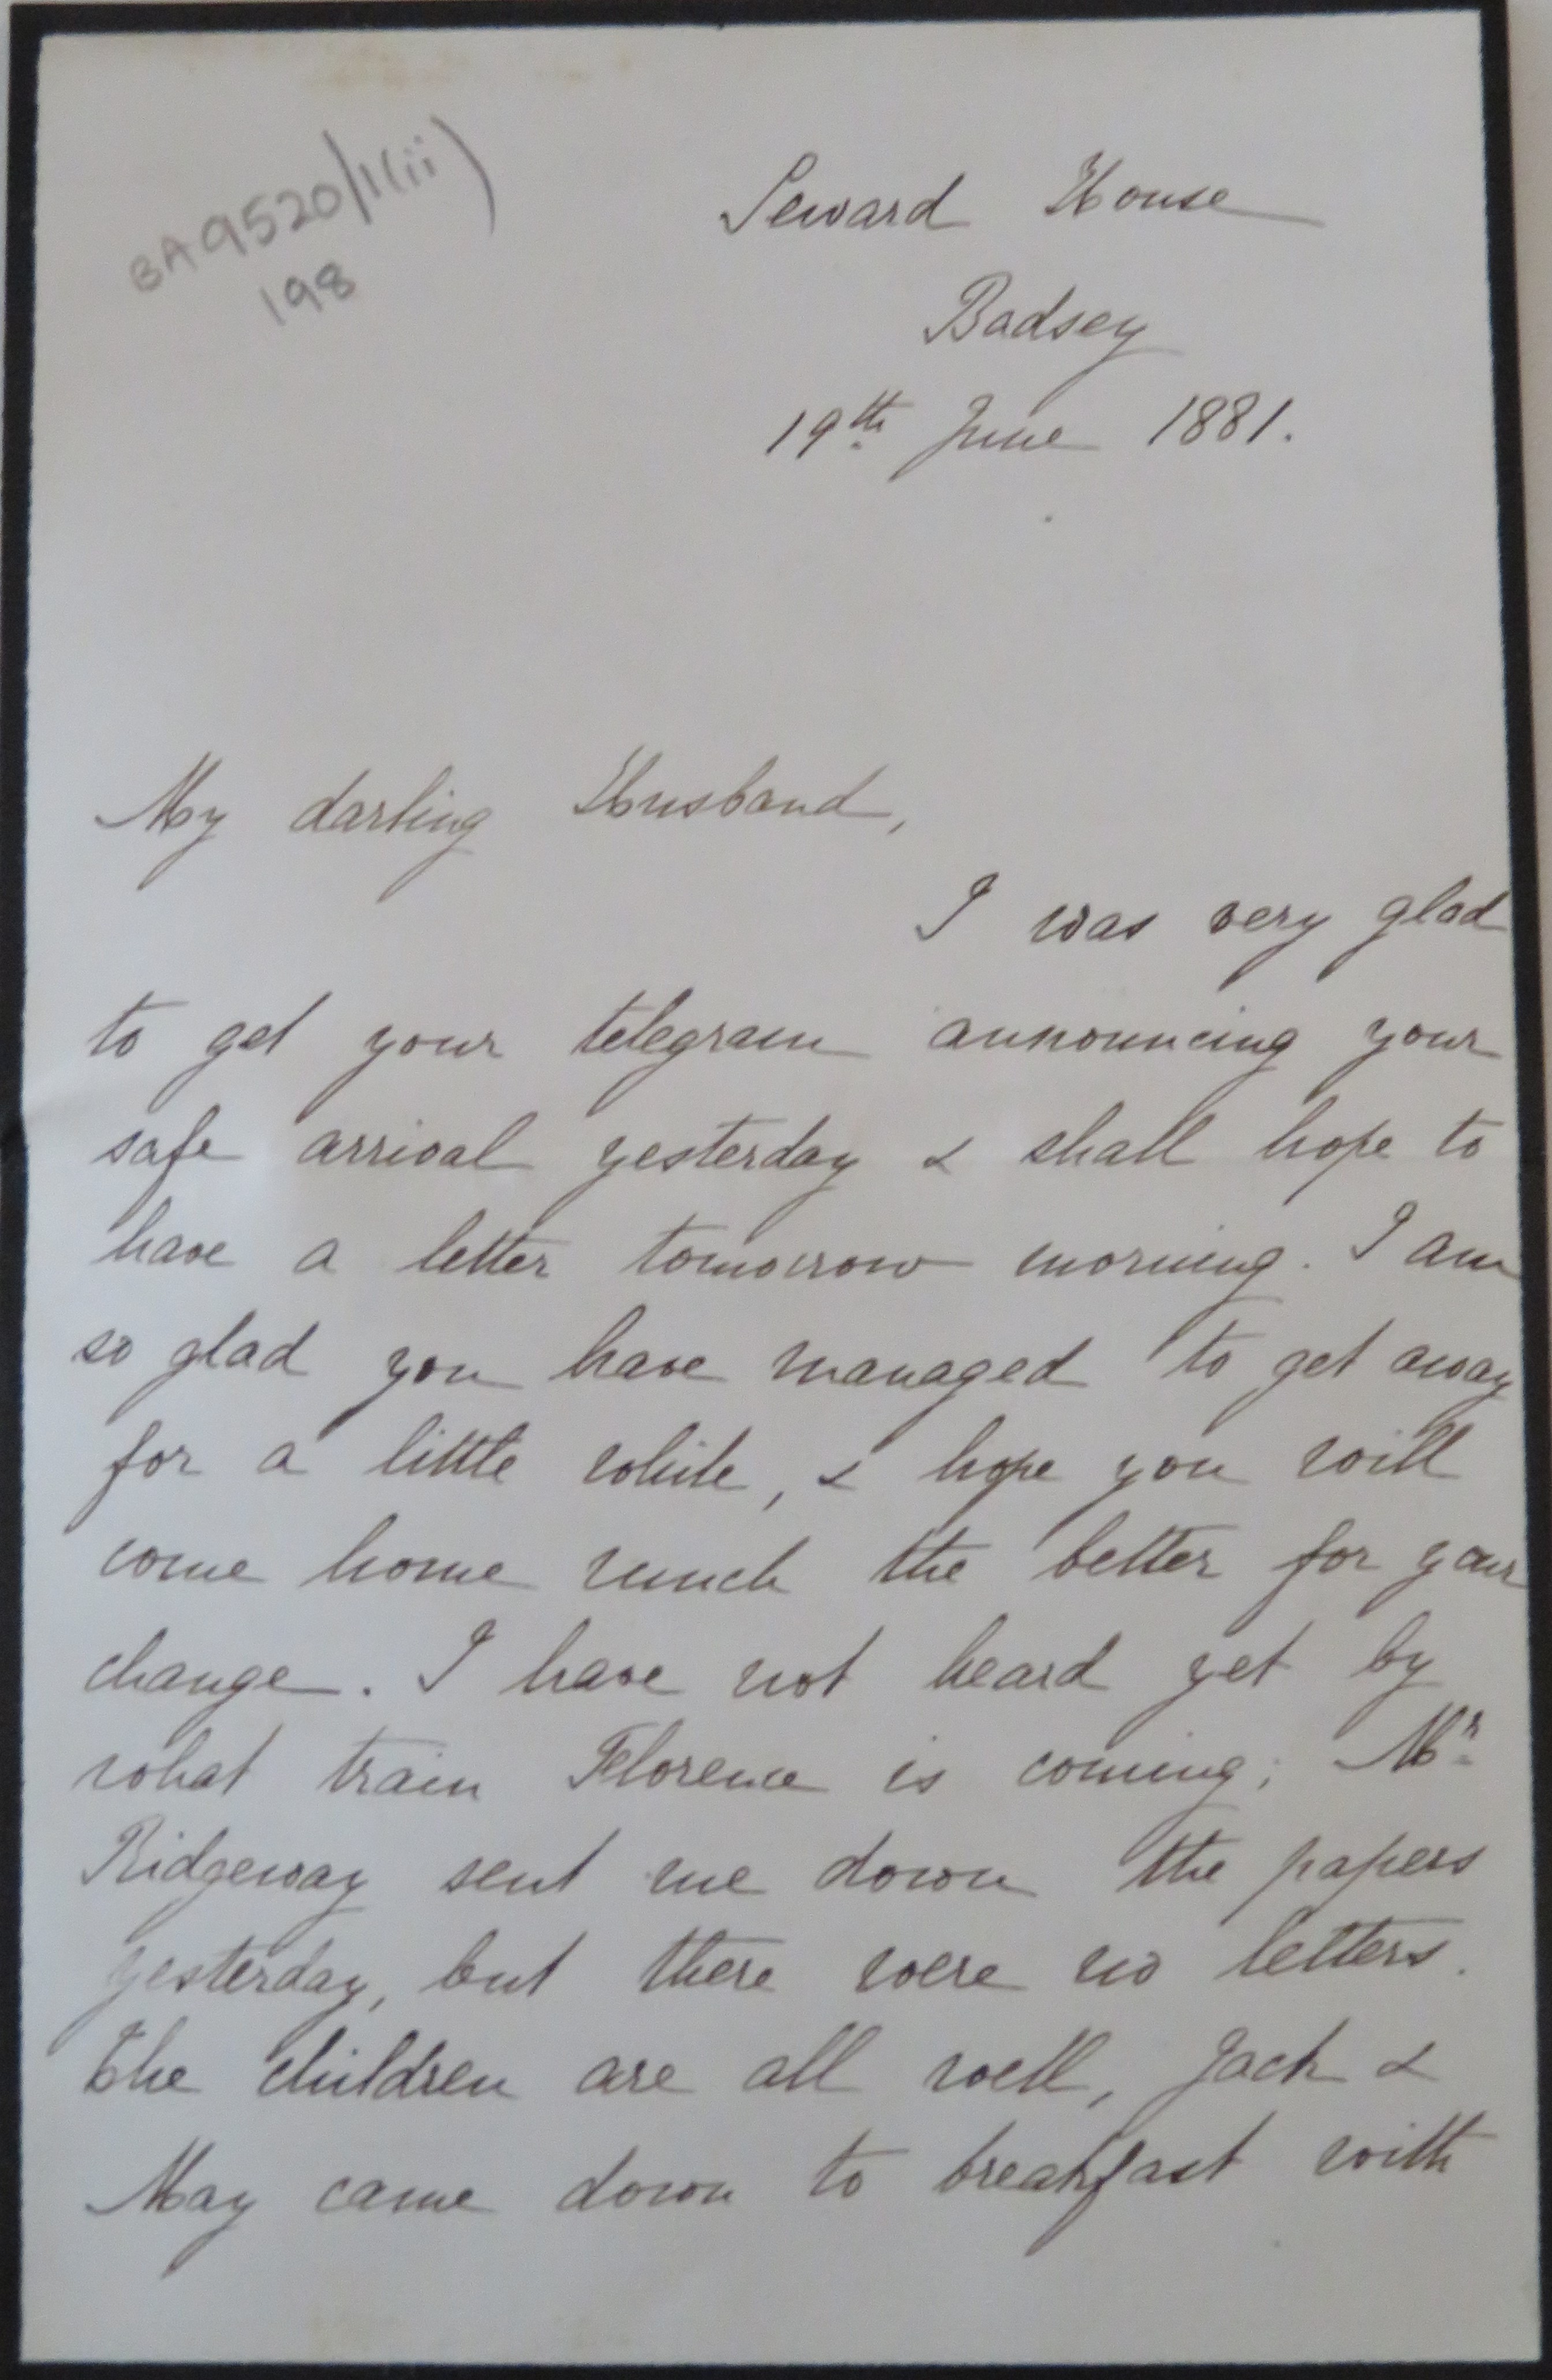 BA9520/1(ii)
198
Seward House
Badsey
19th June 1881.
My darling Husband,
I was very glad
to get your telegram announcing your
safe arrival yesterday & shall hope to
have a letter tomorrow morning. I am
so glad you have managed to get away
for a little while, & hope you will
come home much the better for your
change. I have not heard yet by
what train Florence is coming; Mr
Ridgeway sent me down the papers
yesterday, but there were no letters.
The children are all well, Jack &
May came down to breakfast with